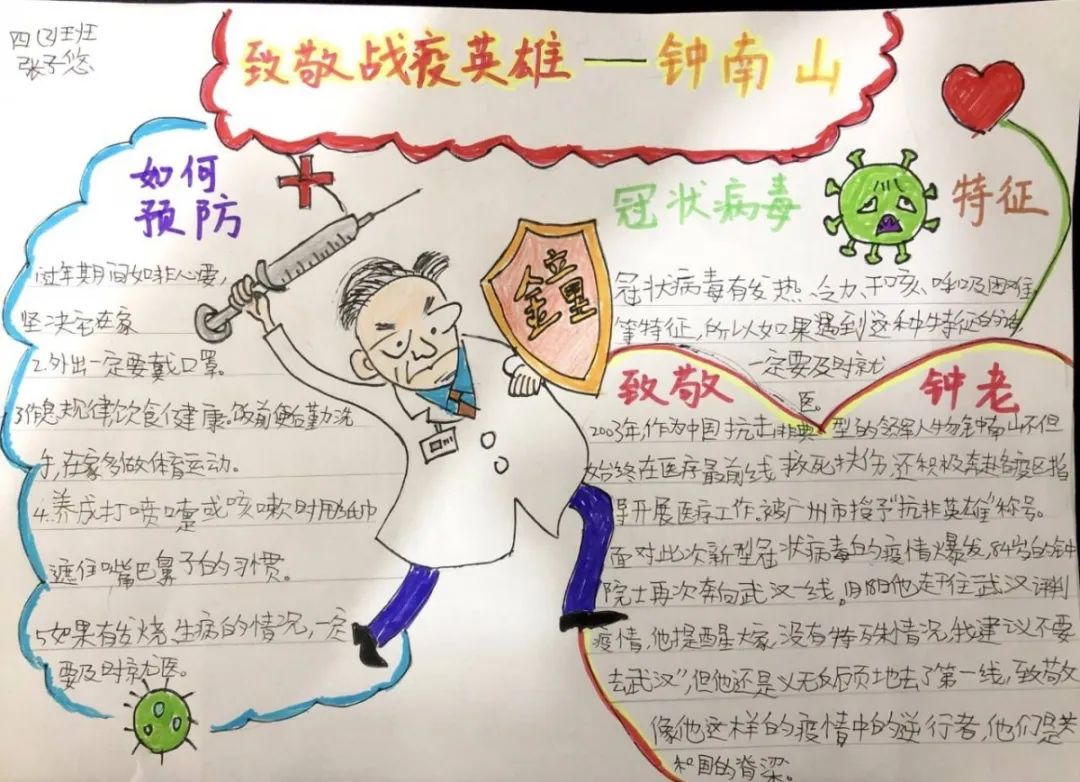 四(3)班
张子悠
致敬战疫英雄——钟南山
如何
预防
过年期间如非必要,
坚决宅在家
2.外出一定要戴口罩。
3作息规律,饮食健康。饭前便后勤洗
手,在家多做体育运动。
4.养成打喷嚏或咳嗽时用纸巾
遮住嘴巴鼻子的习惯。
5.如果有发烧、生病的情况,一定
要及时就医。
鐘
冠状病毒 特征
冠状病毒有发热、乏力、干咳、呼吸困难
等特征,所以如果遇到这种特征的话
一定要及时就
医。
致敬 钟老
2003年,作为中国抗击非典型的领军人物钟南山不但
始终在医疗最前线救死扶伤,还积极奔赴各疫区指
导开展医疗工作。被广州市授予"抗非英雄"称号。
面对此次新型冠状病毒的疫情爆发,84岁的钟
院士再次奔向武汉一线。他赶往武汉
疫情,他提醒大家,没有特殊情况,我建议不要
去武汉",但他还是义无反顾地去了第一线,致敬
像他这样的疫情中的逆行者,他们是
和国的脊梁。